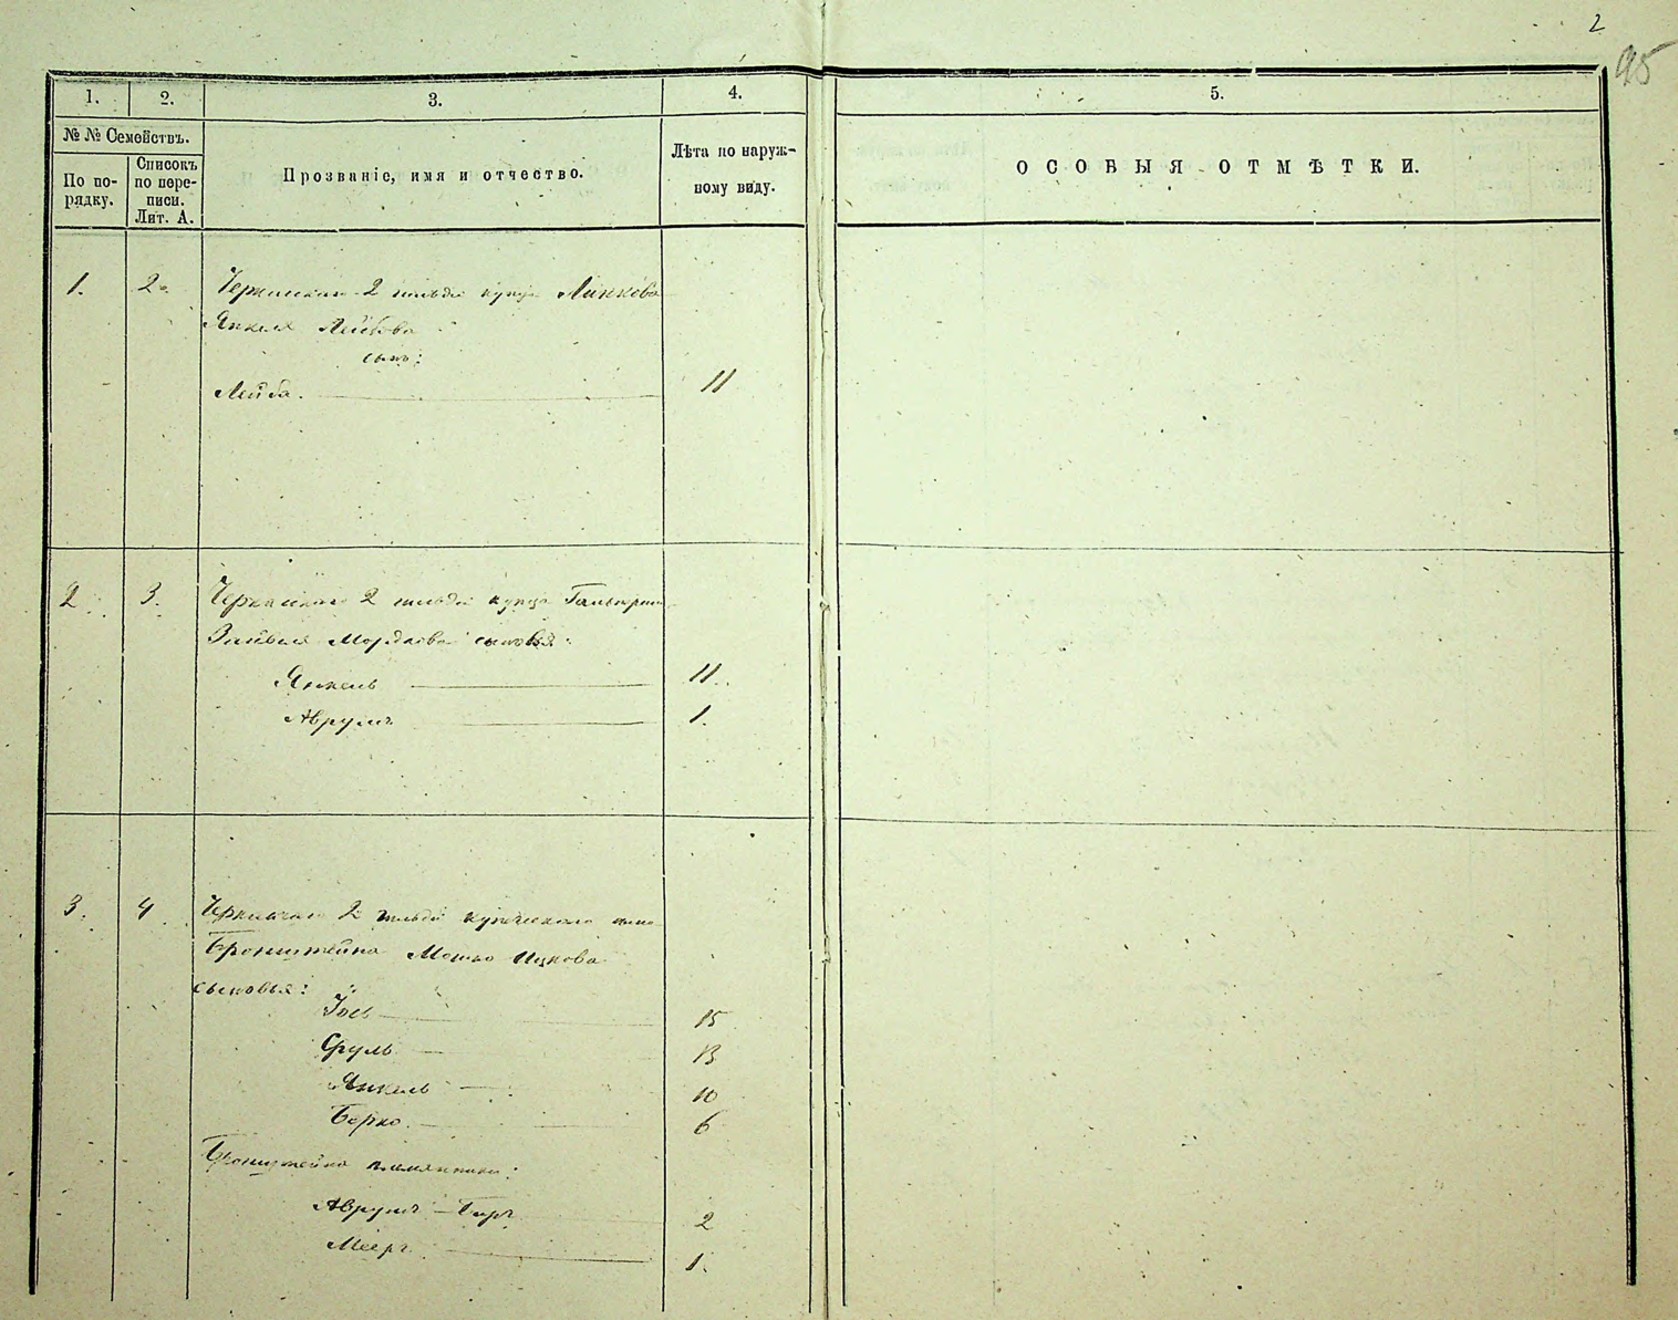 2
95
1. 2. 3. 4. 5.
№ № Семействъ.
По порядку.
Списокъ по переписи. Лит. А.
Прозваніе, имя и отчество.
Лѣта по наружному виду.
ОСОБЫЯ ОТМѢТКИ.
1. 2. Черкаскаго 2 гильдіи купца
Янкеля Лейбова
сынъ:
Лейба. 11
2 3. Черкаскаго 2 гильдіи купца
Мордкова сыновья:
Янкель 11.
Аврумъ 1.
3. 4 Черкаскаго 2 гильдіи купеческаго
Бронштейна Мошко Ицкова
сыновья:
Іось 15
Сруль 13
Янкель 10
Берко. 6
Бронштейна племянники:
Аврумъ - Беръ 2
Мееръ 1.